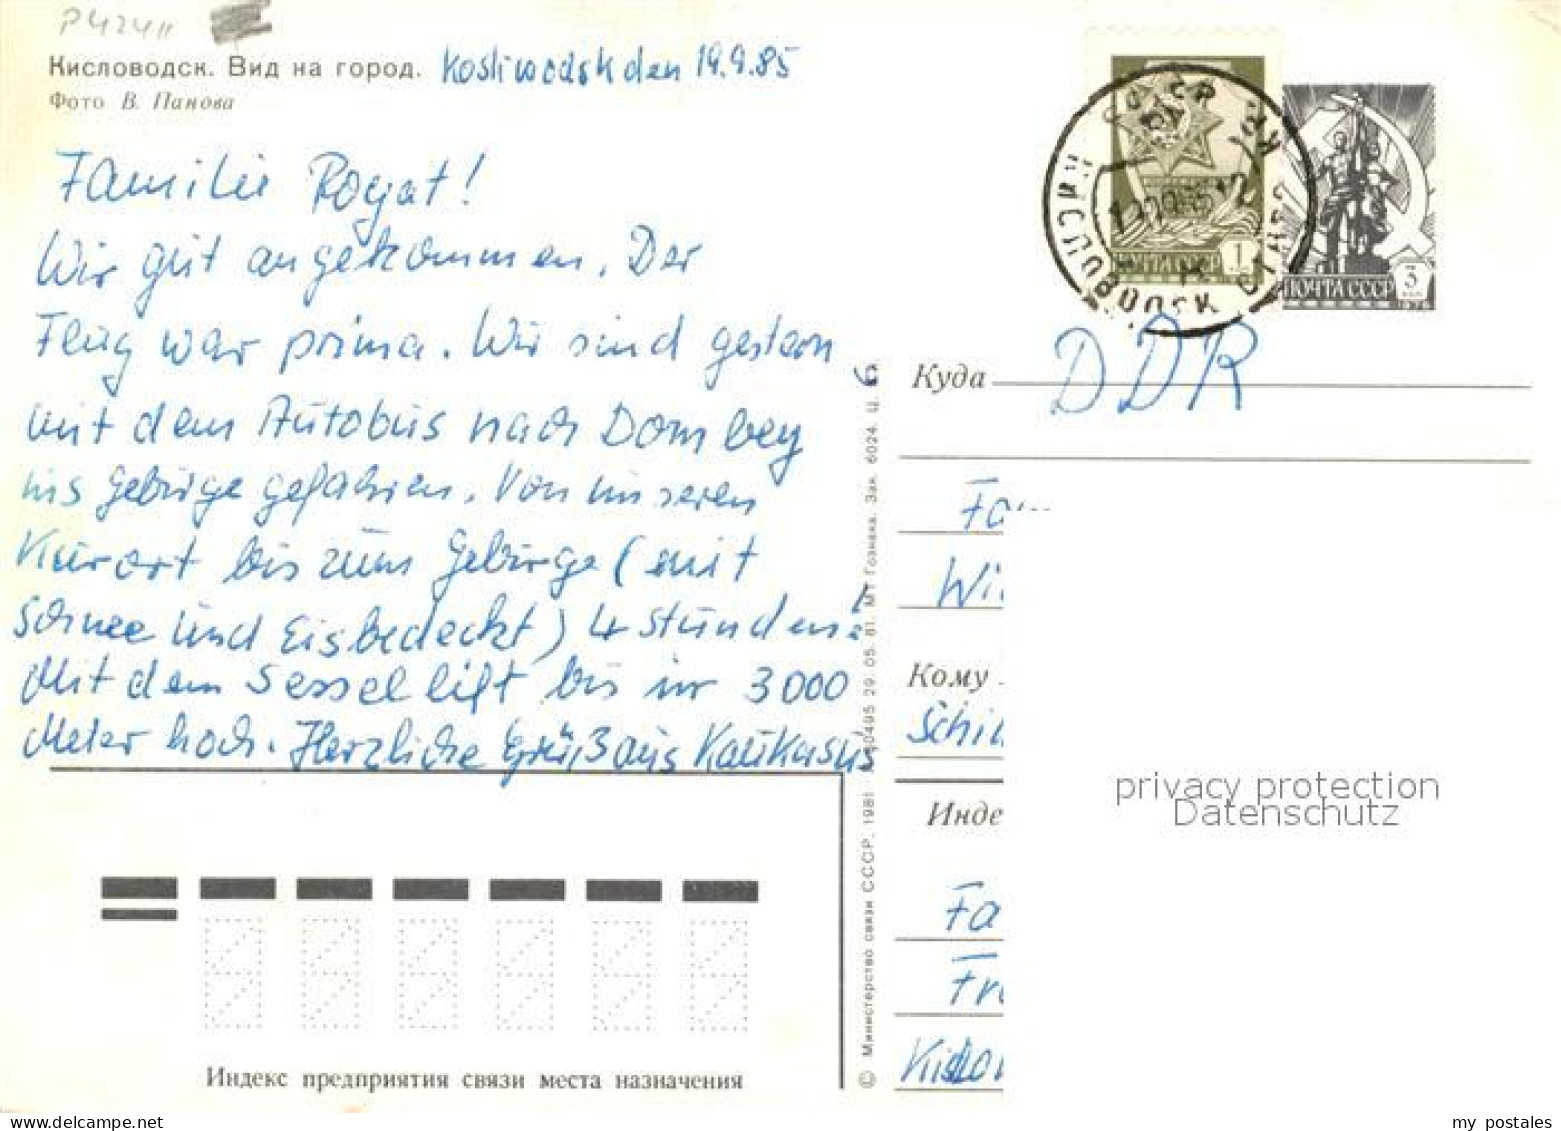 P4241
Кисловодск. Вид на город. Kosliwodsk den 19.9.85
Фото В. Панова
Familie Rogat!
Wir gut angekommen. Der
Flug war prima. Wir sind gestern
mit dem Autobus nach Dombey
ins Gebirge gefahren. Von unseren
Kurort bis zum Gebirge (mit
Schnee und Eisbedeckt) 4 Stunden.
Mit dem Sessellift bis in 3000
Meter hoch. Herzliche Grüß aus Kaukasus
Индекс предприятия связи места назначения
© Министерство связи СССР, 1981 29. 05. 81. МТ Гознака. Зак. 6024. Ц.
СССР
КИСЛОВОДСК СТАВР
KISLOVODSK
ПОЧТА СССР 1
3 коп
ПОЧТА СССР
1976
Куда DDR
Fam
Wi
Кому
Schil
Инде
Fa
Fr
Kislo
privacy protection
Datenschutz
www.delcampe.net
my_postales